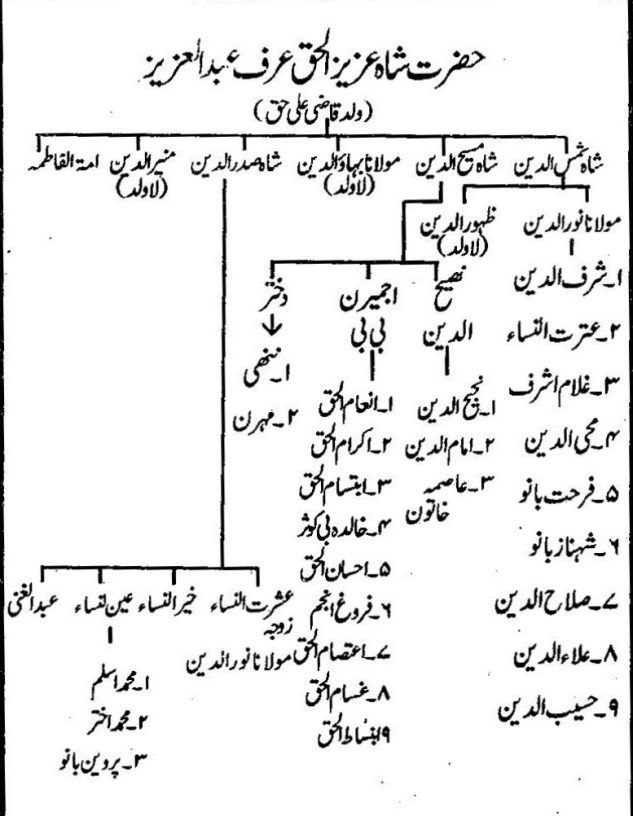 حضرت شاہ عزیز الحق عرف عبد العزیز
(ولد قاضی علی حق)
شاہ شمس الدین
شاہ مسیح الدین
مولانا بہاؤ الدین
(لا ولد)
شاہ صدر الدین
منیر الدین
(لا ولد)
امۃ الفاطمہ
مولانا نور الدین
ظہور الدین
(لا ولد)
۱۔ شرف الدین
۲۔ عترت النساء
۳۔ غلام اشرف
۴۔ محی الدین
۵۔ فرحت بانو
۶۔ شہناز بانو
۷۔ صلاح الدین
۸۔ علاء الدین
۹۔ حسیب الدین
نصیح
الدین
۱۔ نجیح الدین
۲۔ امام الدین
۳۔ عاصمہ
خاتون
اجمیرن
بی بی
۱۔ انعام الحق
۲۔ اکرام الحق
۳۔ ابتسام الحق
۴۔ خالدہ بی کوثر
۵۔ احسان الحق
۶۔ فروغ انجم
۷۔ اعتصام الحق
۸۔ غسام الحق
۹۔ انبساط الحق
دختر
۱۔ ننھی
۲۔ مہرن
عشرت النساء
زوجہ
مولانا نور الدین
خیر النساء
عین لنساء
عبد الغنی
۱۔ محمد اسلم
۲۔ محمد اختر
۳۔ پروین بانو